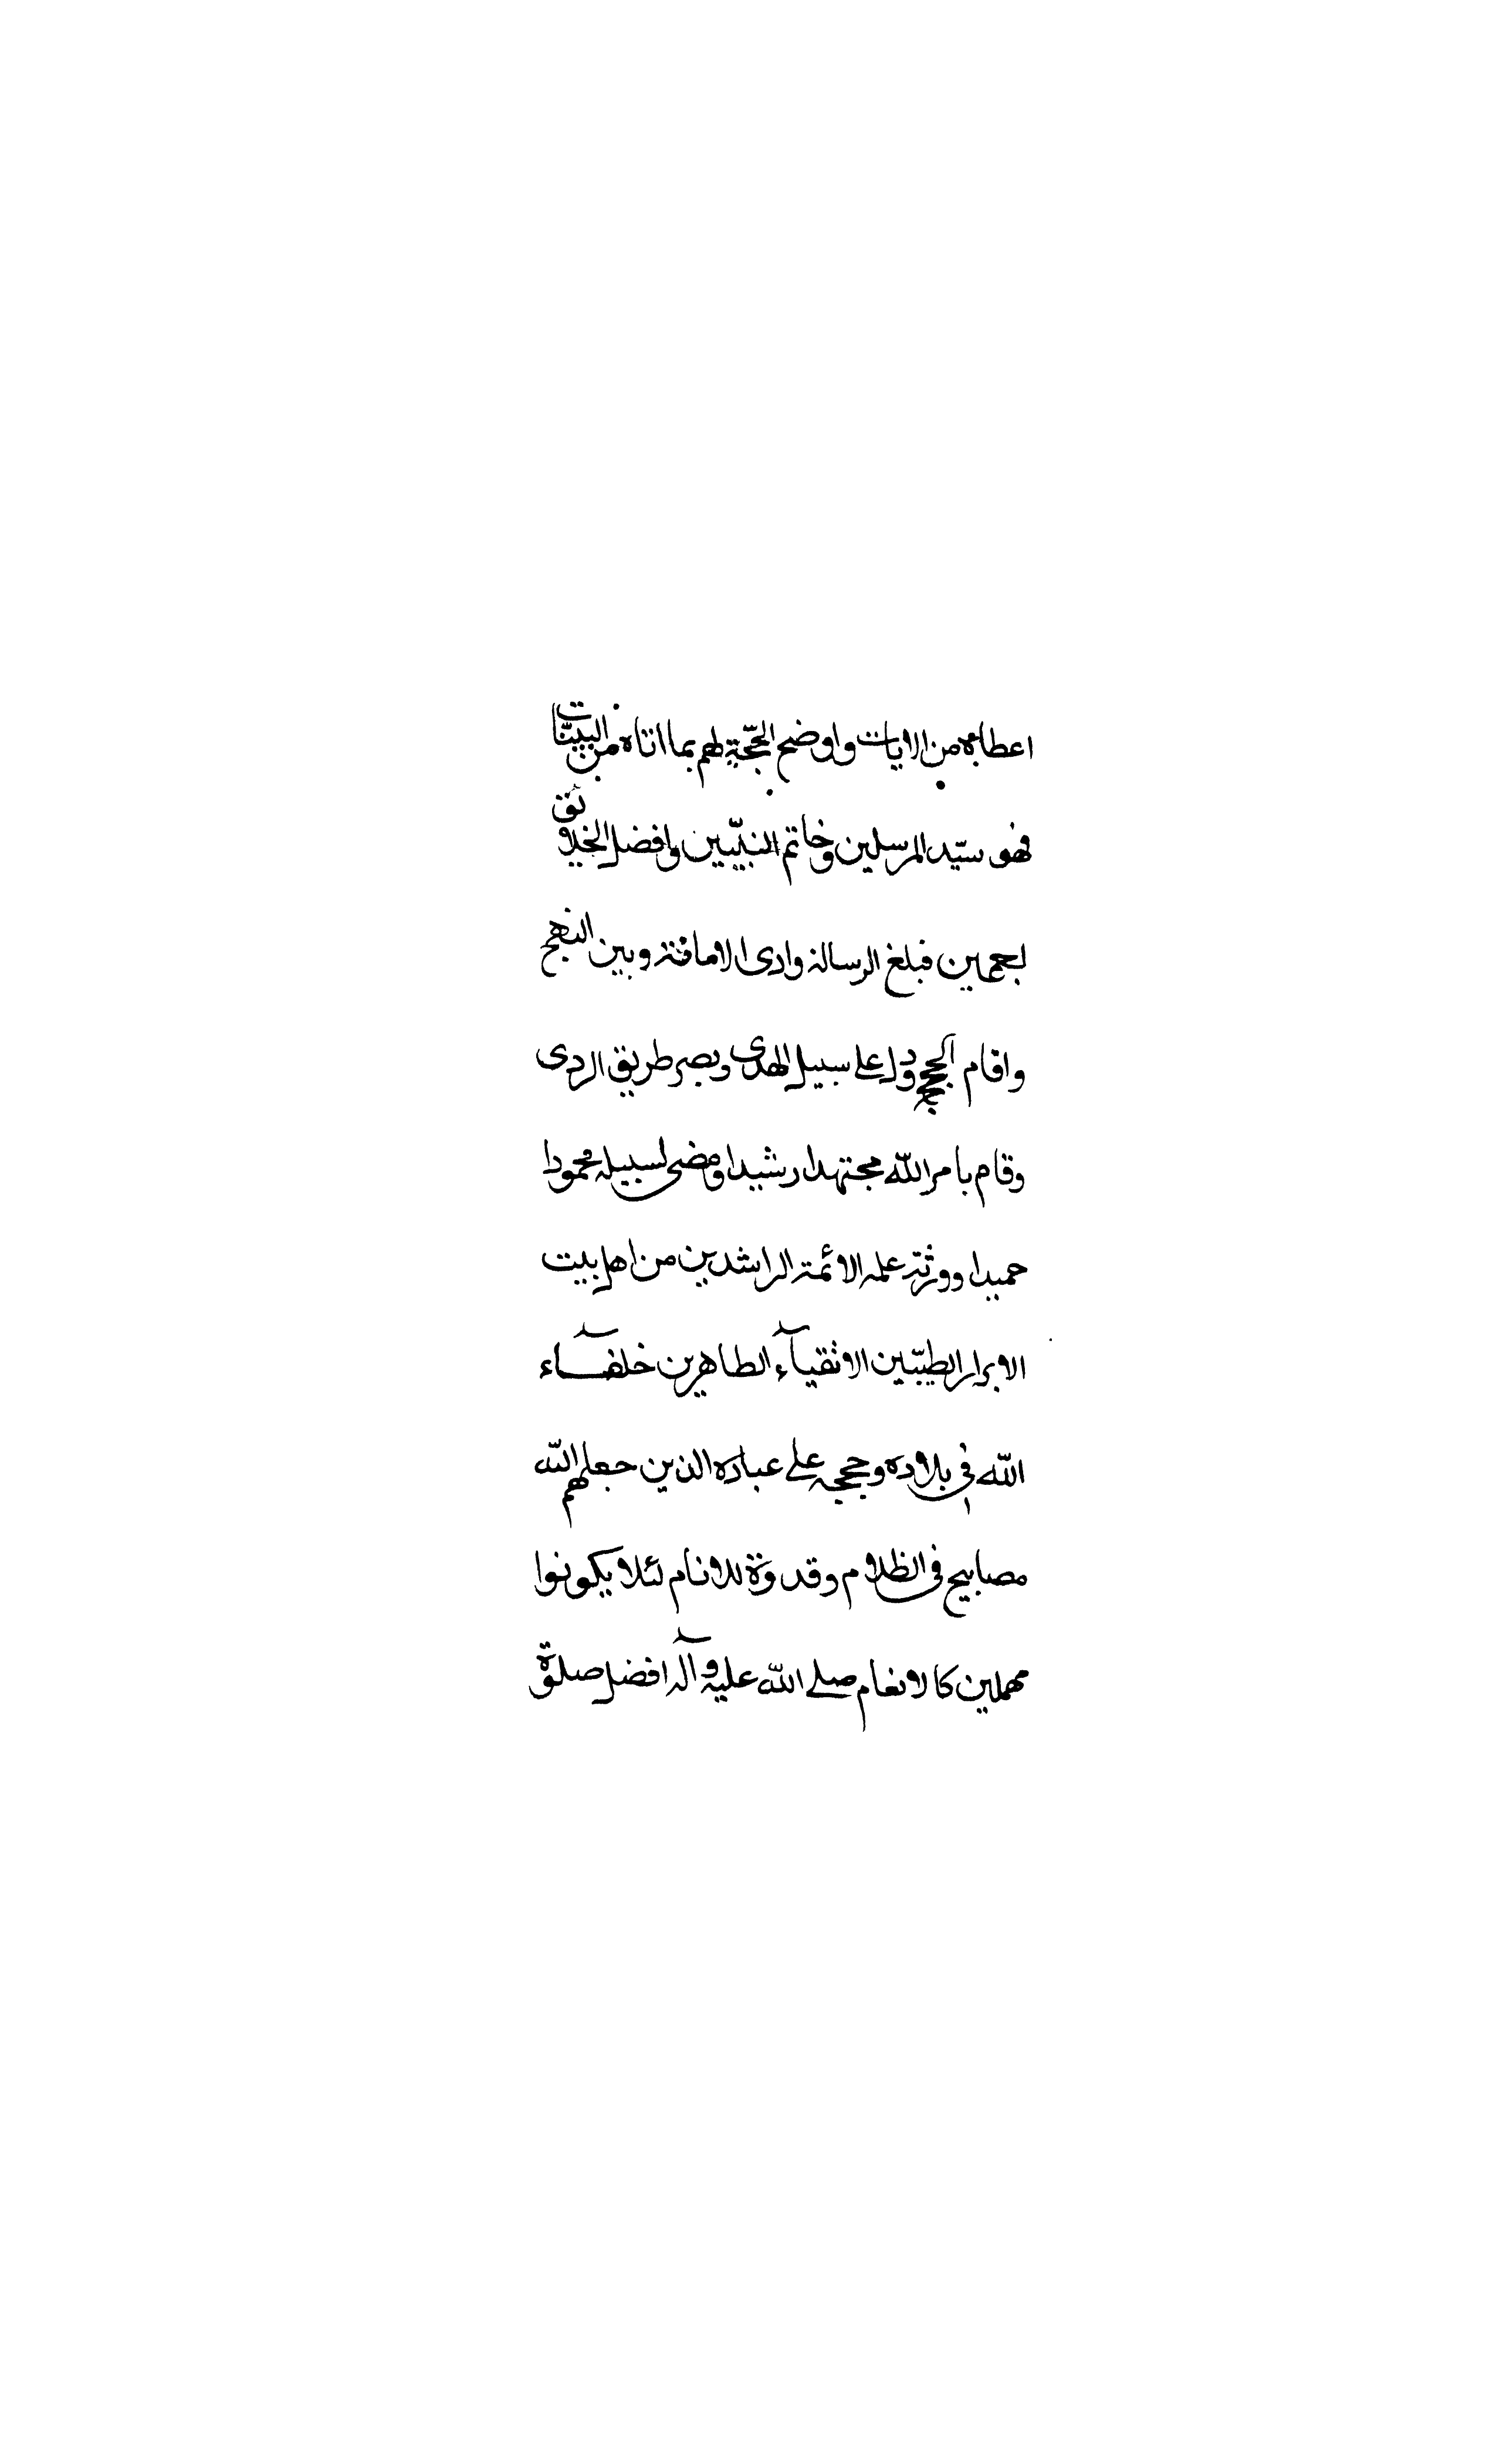 اعطاه من الايات واوضح الحجّة لهم بما اتاه من البيّنات
فهو سيّد المرسلين وخاتم النبيّين وافضل الخلائق
اجمعين فبلغ الرسالة وادى الامانة وبين النهج
واقام الحجج ودل على سبيل الهدى وبصر طريق الردى
وقام بامر اللّه مجتهدا رشيدا ومضى لسبيله محمودا
حميدا وورثته علمه الائمة الراشدين من اهل بيت
الابرار الطيّبين الاتقيآء الطاهرين خلفآء
اللّه في بلاده وحججه على عباده الذين جعلهم اللّه
مصابيح في الظلام وقدوة للانام لئلا يكونوا
مهملين كالانعام صلى اللّه عليه وآله افضل صلوة